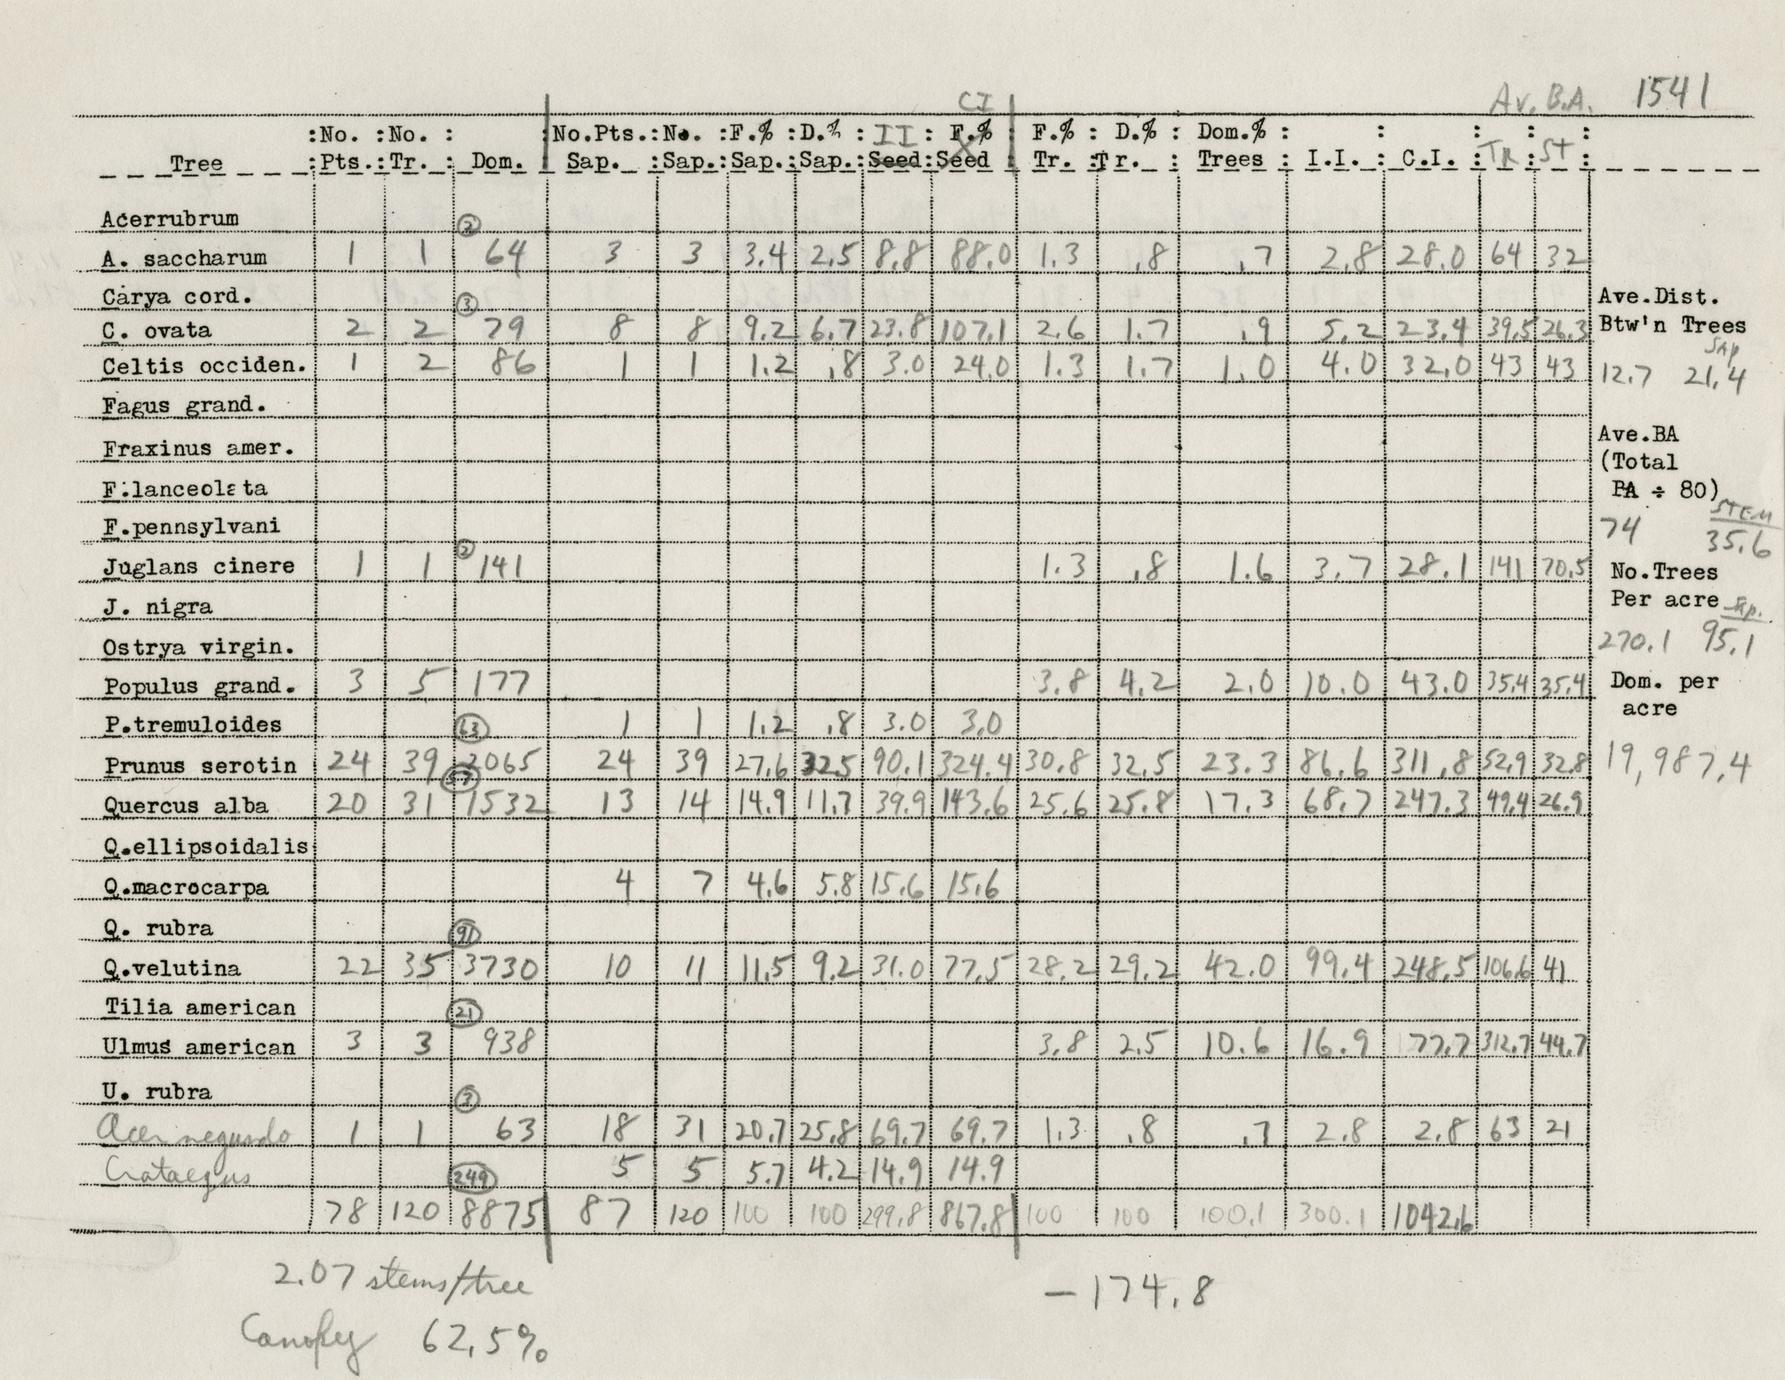 Av. B.A. 1541
CI
:No. :No. : No.Pts.:No. :F.% :D.% : II : F.% : F.% : D.% : Dom.% : : : : :
Tree :Pts.:Tr. : Dom. Sap. :Sap.:Sap.:Sap.:Seed:Seed Tr. :Tr. : Trees : I.I. : C.I. : TR : ST :
Acerrubrum
② 
A. saccharum 1 1 64 3 3 3.4 2.5 8.8 88.0 1.3 .8 .7 2.8 28.0 64 32
Carya cord. ③ Ave.Dist.
C. ovata 2 2 79 8 8 9.2 6.7 23.8 107.1 2.6 1.7 .9 5.2 23.4 39.5 26.3 Btw'n Trees
SAP
Celtis occiden. 1 2 86 1 1 1.2 .8 3.0 24.0 1.3 1.7 1.0 4.0 32.0 43 43 12.7 21.4
Fagus grand.
Fraxinus amer. Ave.BA
(Total
F.lanceolata PA ÷ 80)
STEM
F.pennsylvani 74 35.6
②
Juglans cinere 1 1 141 1.3 .8 1.6 3.7 28.1 141 70.5 No.Trees
J. nigra Per acre Sap.
Ostrya virgin. 270.1 95.1
Populus grand. 3 5 177 3.8 4.2 2.0 10.0 43.0 35.4 35.4 Dom. per
acre
P.tremuloides 63 1 1 1.2 .8 3.0 3.0
Prunus serotin 24 39 2065 24 39 27.6 32.5 90.1 324.4 30.8 32.5 23.3 86.6 311.8 52.9 32.8 19,987.4
57
Quercus alba 20 31 1532 13 14 14.9 11.7 39.9 143.6 25.6 25.8 17.3 68.7 247.3 49.4 26.9
Q.ellipsoidalis
Q.macrocarpa 4 7 4.6 5.8 15.6 15.6
Q. rubra 91
Q.velutina 22 35 3730 10 11 11.5 9.2 31.0 77.5 28.2 29.2 42.0 99.4 248.5 106.6 41
Tilia american 21
Ulmus american 3 3 938 3.8 2.5 10.6 16.9 77.7 312.7 44.7
U. rubra ③
Acer negundo 1 1 63 18 31 20.7 25.8 69.7 69.7 1.3 .8 .7 2.8 2.8 63 21
Crataegus 249 5 5 5.7 4.2 14.9 14.9
78 120 8875 87 120 100 100 299.8 867.8 100 100 100.1 300.1 1042.6
2.07 stems/tree
-174.8
Canopy 62.5%